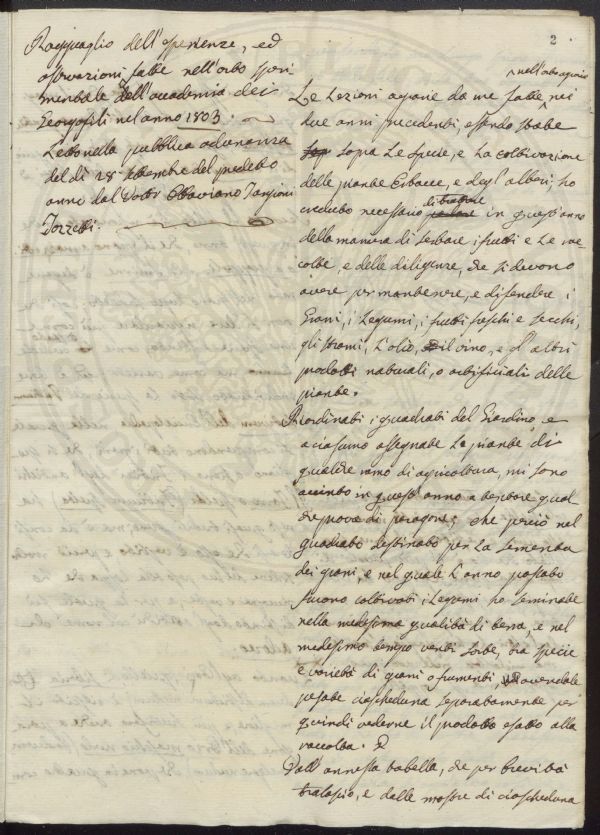 2
Ragguaglio dell'esperienze, ed
osservazioni fatte nell'orto speri
mentale dell'accademia dei
Georgofili nel anno 1803.
Letto nella pubblica adunanza
del dì 28 settembre del predetto
anno dal Dottr Ottaviano Targioni
Tozzetti.
nell'orto agrario
Le Lezioni agrarie da me fatte nei
due anni precedenti, essendo state
sopra Le specie, e La coltivazione
delle piante Erbacee, e degl'alberi, ho
creduto necessario di trattare in quest'anno
della maniera di serbare i frutti e Le rac
colte, e delle diligenze, che si devono
avere per mantenere, e difendere i
Grani, i Legumi, i frutti freschi e secchi,
gli strami, L'olio, il vino, e gl'altri
prodotti naturali, o artificiali delle
piante.
Riordinati i quadrati del Giardino, e
a ciascuno assegnate Le piante di
qualche ramo di agricoltura, mi sono
accinto in quest'anno a tentare qual
che prova di paragone; che perciò nel
quadrato destinato per La sementa
dei grani, e nel quale L'anno passato
furono coltivati i Legumi ho seminate
nella medesima qualità di terra, e nel
medesimo tempo venti sorte, tra specie
e varietà di grani o frumenti, avendole
pesate ciascheduna separatamente per
quindi vederne il prodotto esatto alla
raccolta.
Dall'annessa tabella, che per brevità
tralascio, e dalle mostre di ciascheduna